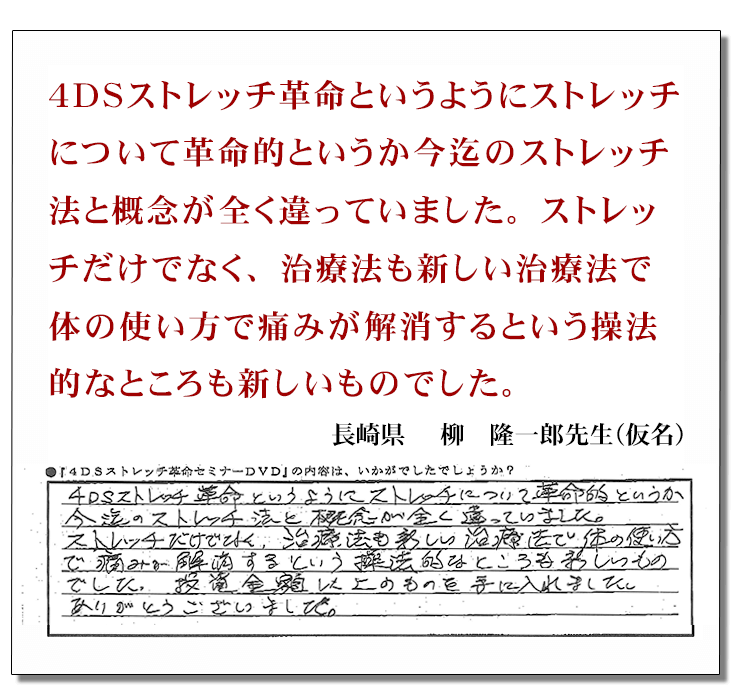 4DSストレッチ革命というようにストレッチ
について革命的というか今迄のストレッチ
法と概念が全く違っていました。ストレッ
チだけでなく、治療法も新しい治療法で
体の使い方で痛みが解消するという操法
的なところも新しいものでした。
長崎県 柳 隆一郎先生(仮名)
●『4DSストレッチ革命セミナーDVD』の内容は、いかがでしたでしょうか？
4DSストレッチ革命というようにストレッチについて革命的というか
今迄のストレッチ法と概念が全く違っていました。
ストレッチだけでなく、治療法も新しい治療法で体の使い方
で痛みが解消するという操法的なところも新しいもの
でした。投資金額以上のものを手に入れました。
ありがとうございました。